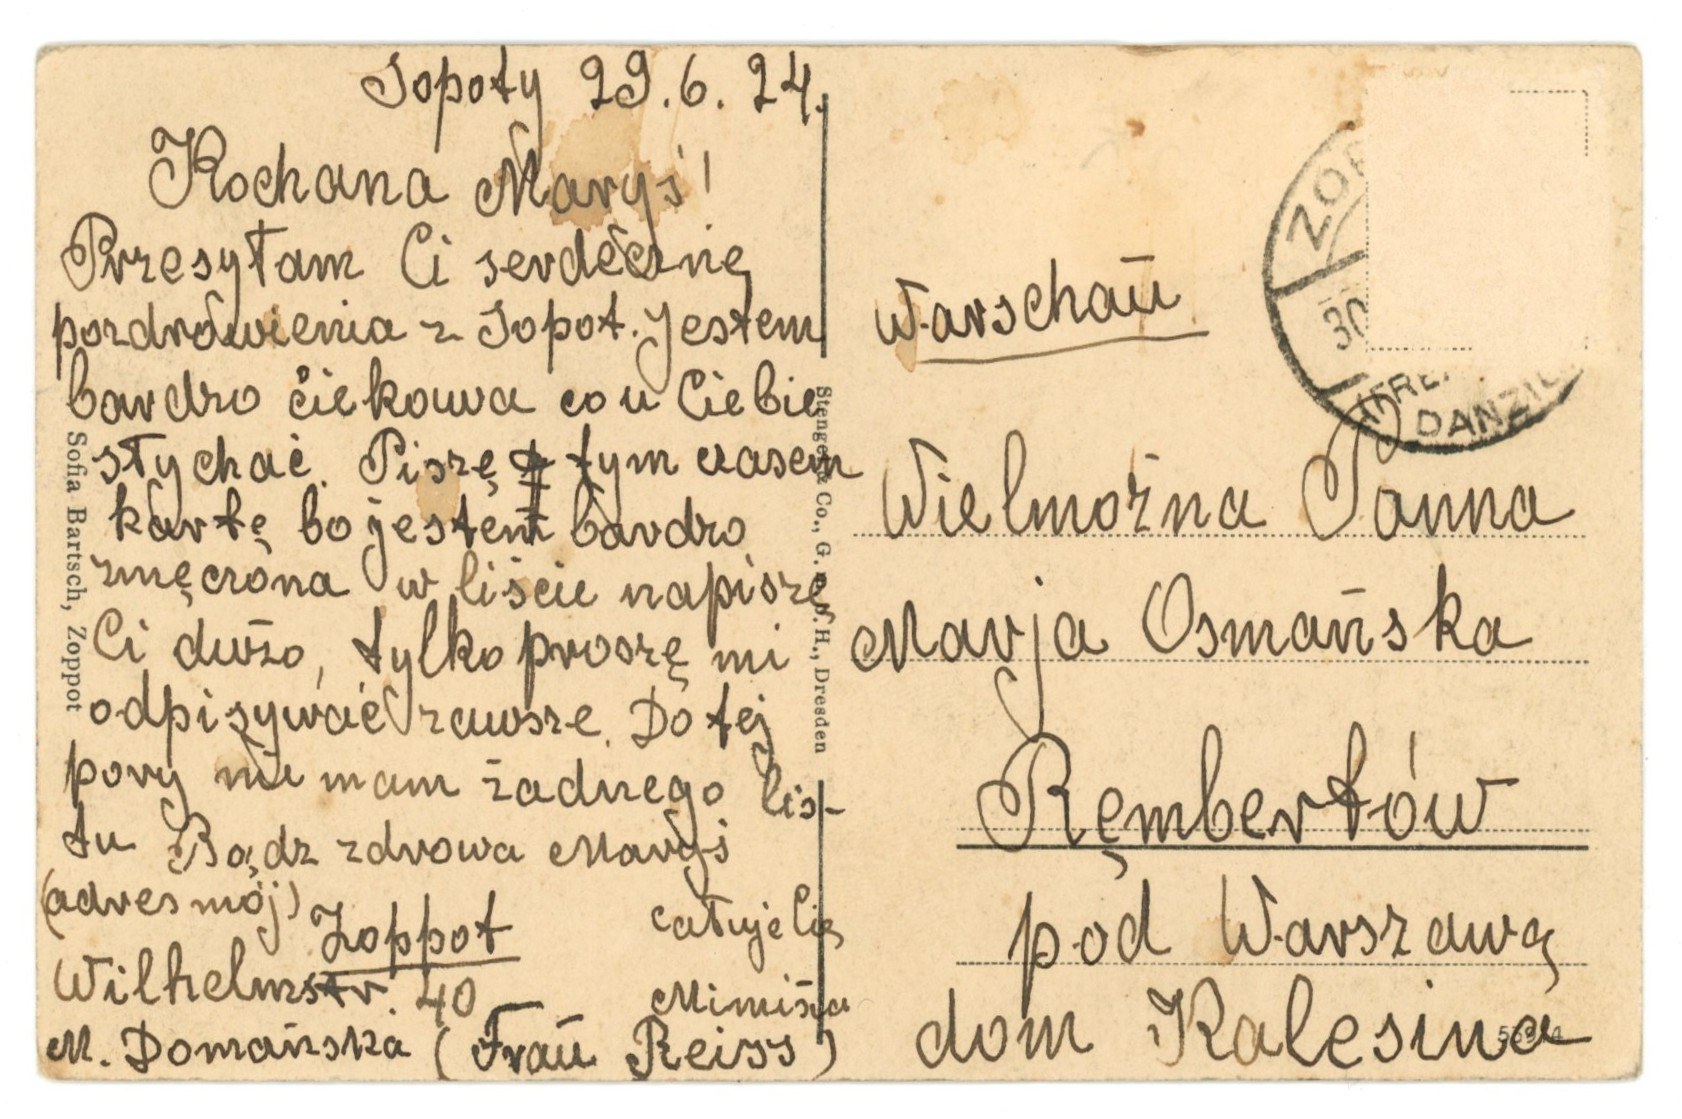 Sopoty 29.6.24.
Kochana Maryś!
Przesyłam Ci serdeczne
pozdrówienia z Sopot. Jestem
bardzo ciekawa co u Ciebie
słychać. Piszę tym czasem
kartę bo jestem bardzo
zmęczona w liście napiszę
Ci dużo, tylko proszę mi
odpisywać zawsze. Do tej
pory nie mam żadnego lis-
tu Bądz zdrowa Maryś
(adres mój)
Zoppot
całuje Cię
Wilhelmstr. 40
Mimiśia
M. Domańska (Fraū Reiss)
Sofia Bartsch, Zoppot
Stengel & Co., G. m. b. H., Dresden
Warschaū
ZOP
30
FREI
DANZIG
Wielmożna Panna
Marja Osmańska
Rembertów
pod Warszawą
dom Kalesina